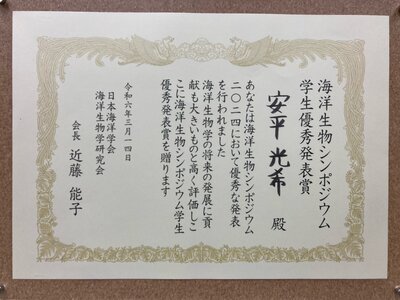 海洋生物シンポジウム
学生優秀発表賞
安平光希 殿
あなたは海洋生物シンポジウム
二〇二四において優秀な発表
を行われました
海洋生物学の将来の発展に貢
献も大きいものと高く評価しこ
こに海洋生物シンポジウム学生
優秀発表賞を贈ります
令和六年三月一四日
日本海洋学会
海洋生物学研究会
会長 近藤能子